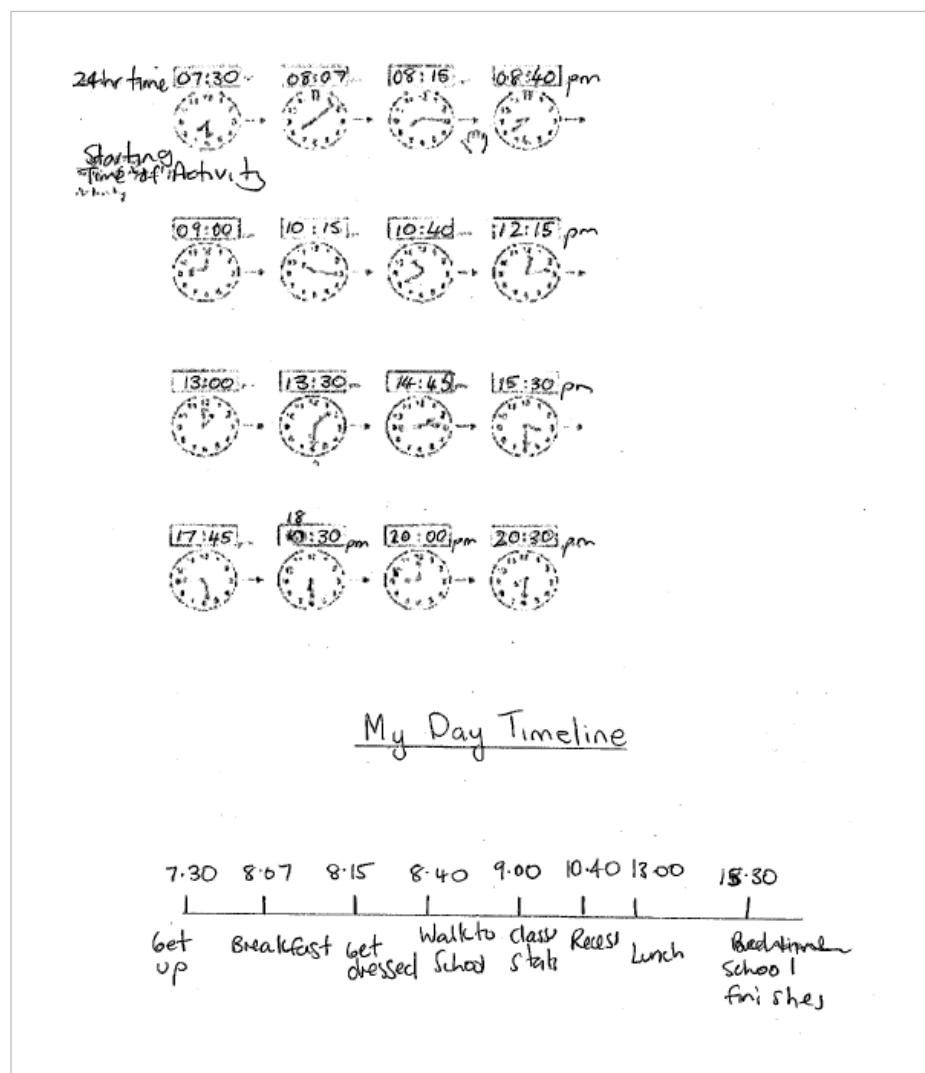 24hr time 07:30 08:07 08:15 08:40 pm
Starting
Time of Activity
09:00 10:15 10:40 12:15 pm
13:00 13:30 14:45 15:30 pm
18
17:45 :30 pm 20:00 pm 20:30 pm
My Day Timeline
7.30 8.07 8.15 8.40 9.00 10.40 13.00 15.30
Get up Breakfast Get dressed Walk to School Class starts Recess Lunch School finishes